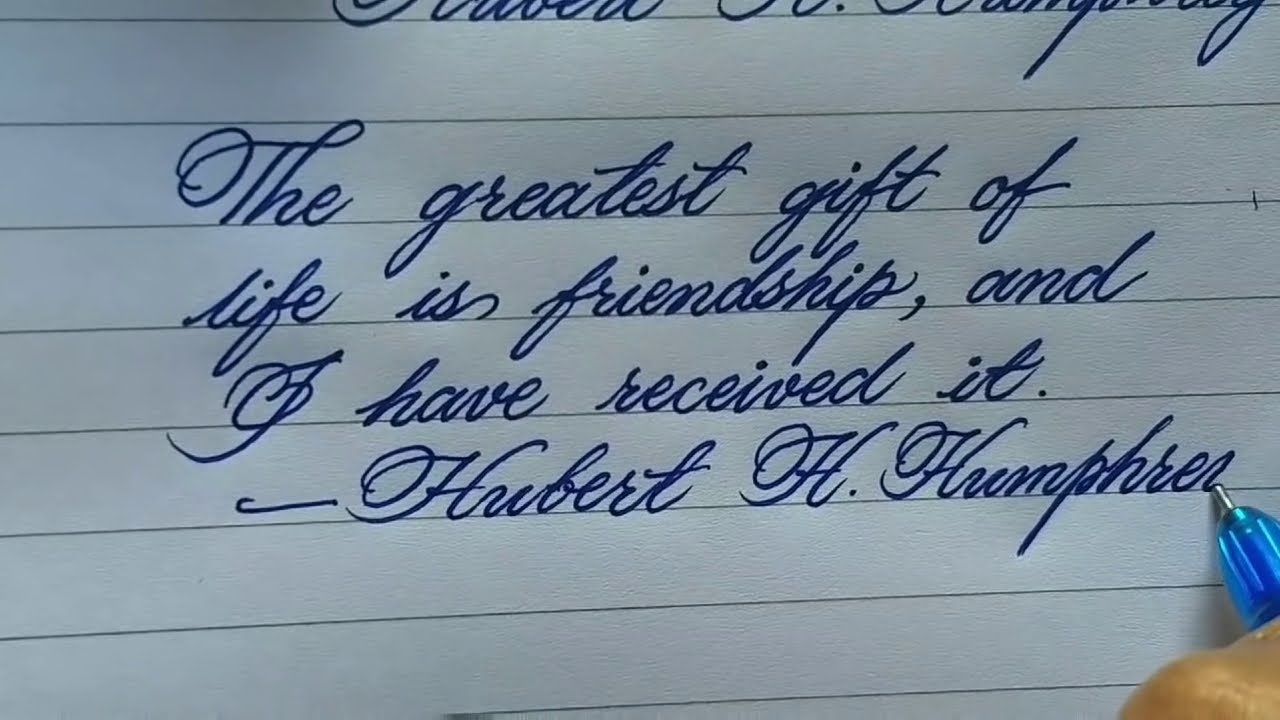 Hubert H. Humphrey
The greatest gift of
life is friendship, and
I have received it.
— Hubert H. Humphrey